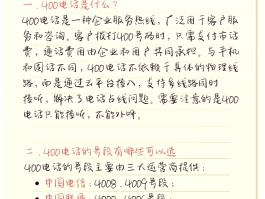 一.400电话是什么?
400电话是一种企业服务热线,广泛用于客户服
务和咨询。客户拨打400号码时,只需支付市话
费,通话费用由企业和用户共同承担。与手机
和固话不同,400电话不依赖于具体的物理线
路,而是通过云平台接入,支持多线路同时
接听,解决了电话占线问题。需要注意的是400
电话只能接听,不能外呼。
二.400电话的号段有哪些可以选
400电话的号段主要由三大运营商提供:
• 中国电信:4008、4009号段;